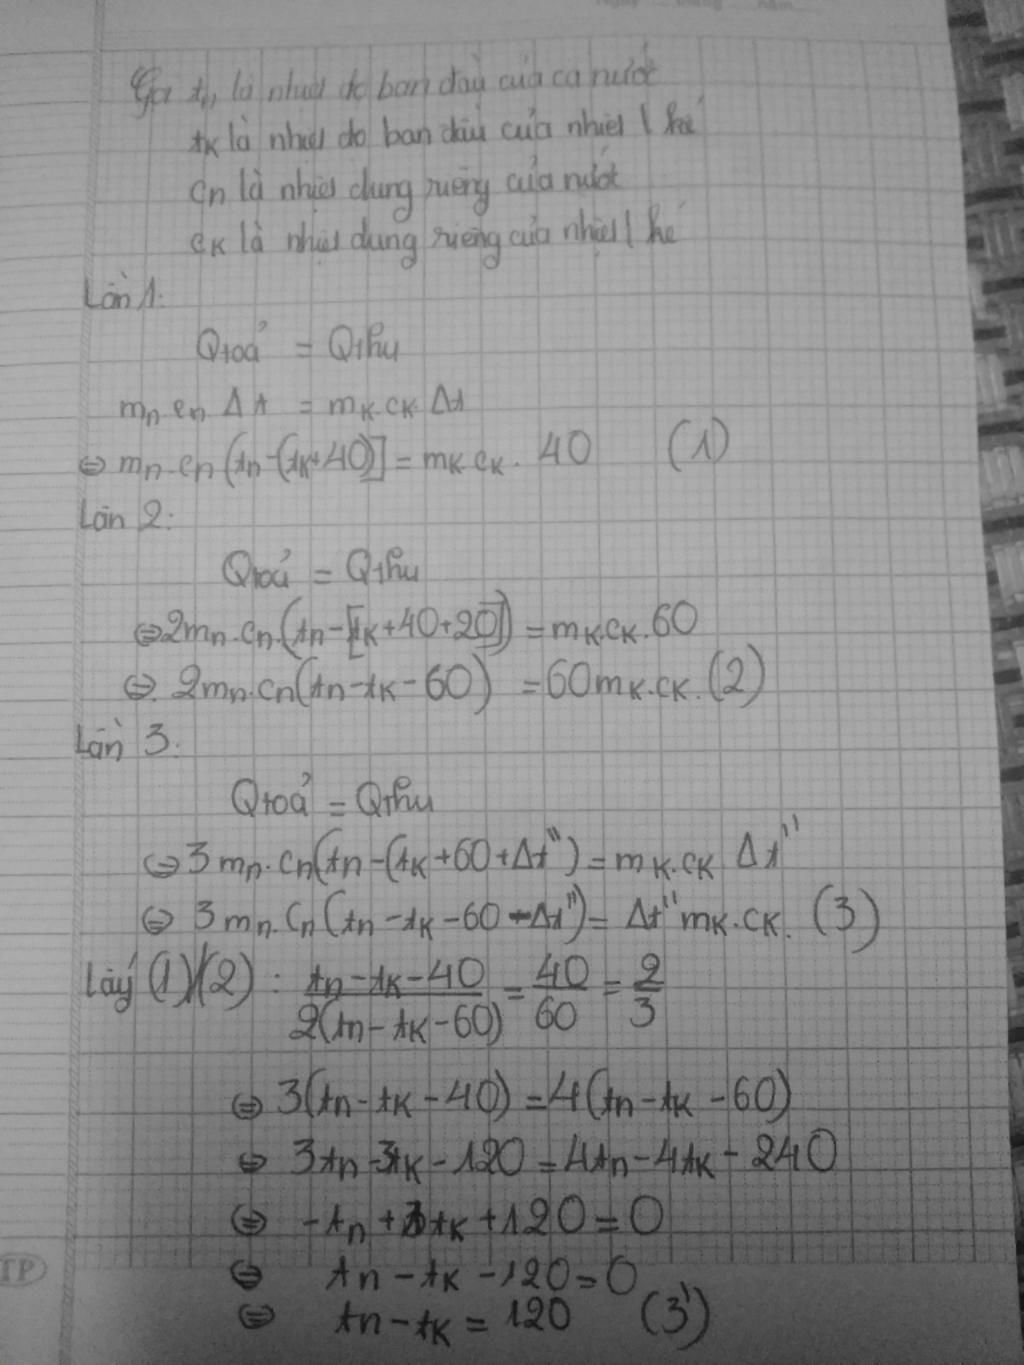 Gọi tn là nhiệt độ ban đầu của ca nước
tK là nhiệt do ban đầu của nhiệt l kế
Cn là nhiệt dung riêng của nước
CK là nhiệt dung riêng của nhiệt l kế
Lần 1:
Qtoả = Qthu
mn.cn Δt = mK.cK.Δt
⇔ mn.cn(tn-(tK+40)] = mK.cK. 40 (1)
Lần 2:
Qtoả = Qthu
⇔2mn.cn.(tn-[tK+40+20]) = mK.cK.60
⇔ 2mn.cn(tn-tK-60) = 60mK.cK.(2)
Lần 3:
Qtoả = Qthu
⇔ 3mn.cn(tn-(tK+60+Δt'') = mK.cK Δt''
⇔ 3mn.Cn(tn-tK-60-Δt'') = Δt''mK.cK. (3)
Lấy (1)/(2) : tn-tK-40 / 2(tn-tK-60) = 40/60 = 2/3
⇔ 3(tn-tK-40) = 4(tn-tK-60)
⇔ 3tn-3tK-120 = 4tn-4tK-240
⇔ -tn + tK + 120 = 0
⇔ tn-tK-120 = 0
⇔ tn-tK = 120 (3')
TP